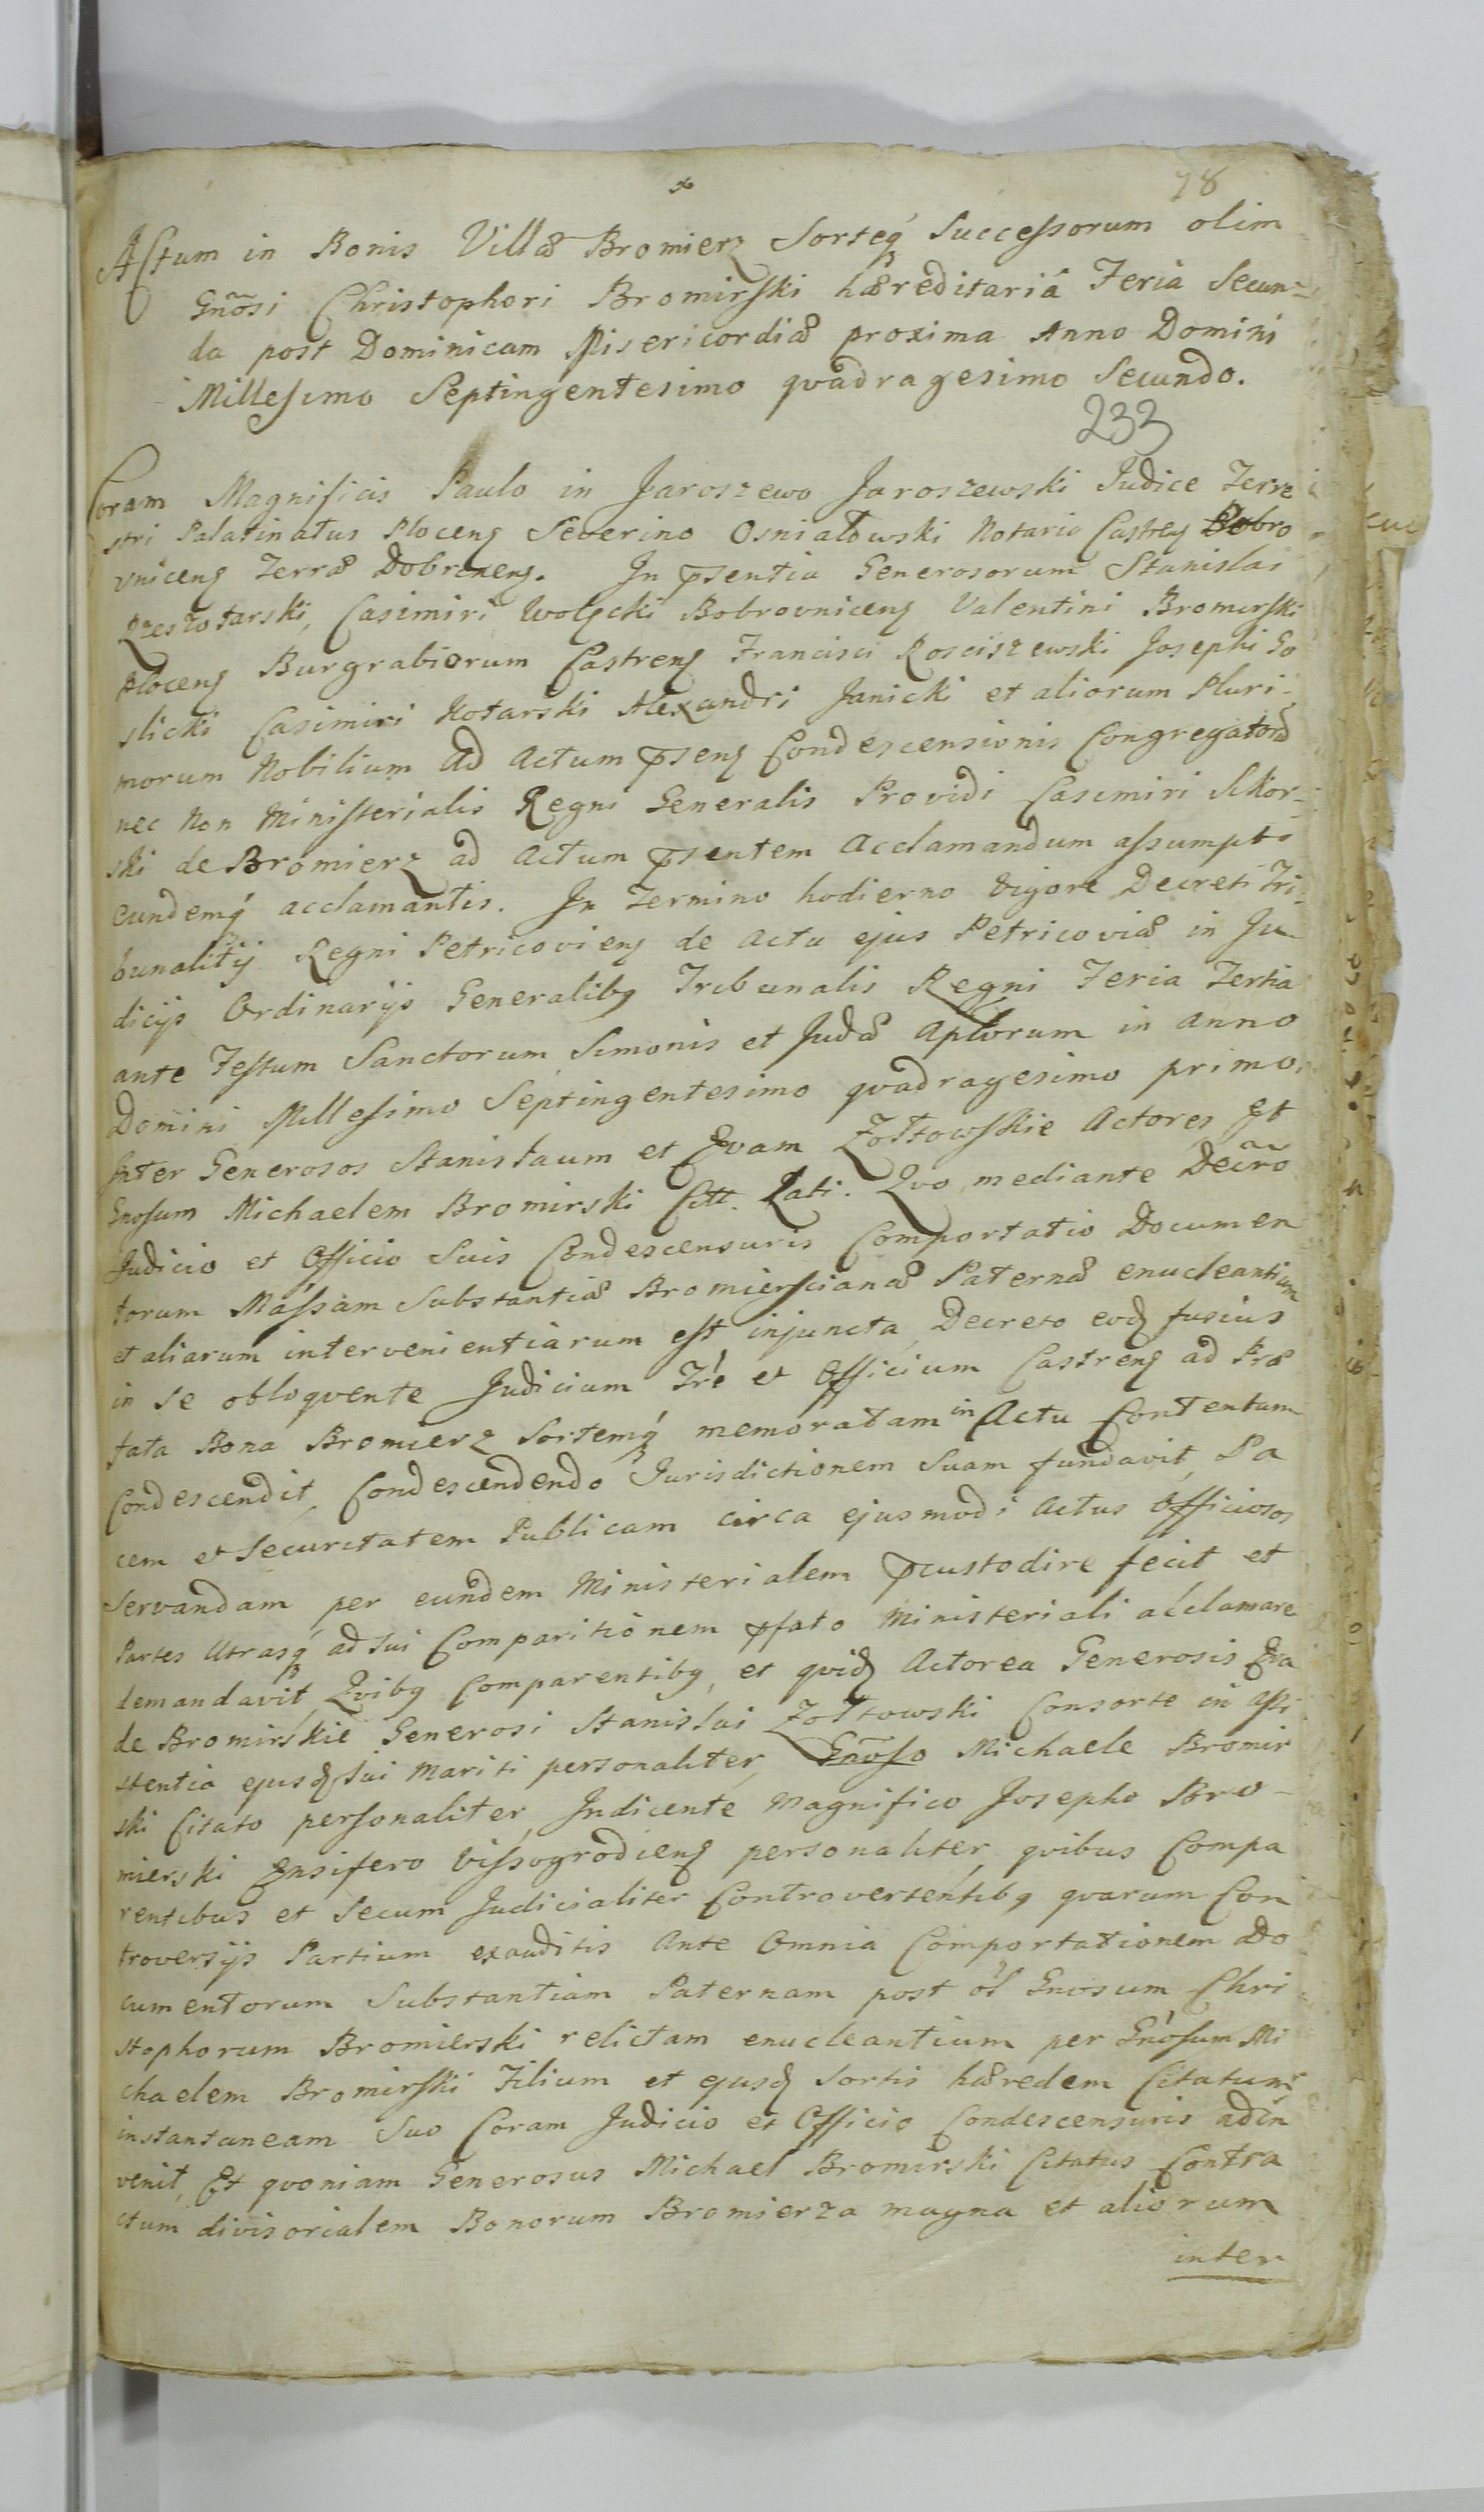 78
Actum in Bonis Villæ Bromierz Sorteq́ꝫ Successorum olim
Gnõsi Christophori Bromirski hæreditariâ Feria Secun-
da post Dominicam Misericordiæ proxima Anno Domini
Millesimo Septingentesimo qvadragesimo Secundo.
233
Coram Magnificis Paulo in Jaroszewo Jaroszewski Judice Terre
stri Palatinatus Plocenꝭ Severino Osniałowski Notario Castrenꝭ Bobro
vnicenꝭ Terræ Dobrinenꝭ. In p̄sentia Generosorum Stanislai
Rzeszotarski, Casimiri Wolęcki Bobrovnicenꝭ Valentini Bromirski
Plocenꝭ Burgrabiorum Castrenꝭ Francisci Rosciszewski Josephi Go
slicki Casimiri Kotarski Alexandri Janicki et aliorum Pluri-
morum Nobilium ad Actum p̄senꝭ Condescensionis Congregatorũ
nec Non Ministerialis Regni Generalis Providi Casimiri Sikor-
ski de Bromierz ad Actum p̄sentem Acclamandum assumpti
eundemq́ꝫ acclamantis. In Termino hodierno Vigore Decreti Tri-
bunalitij Regni Petricovienꝭ de Actu ejus Petricoviæ in Ju
dicijs Ordinarijs Generalibꝰ Tribunalis Regni Feria Tertia
ante Festum Sanctorum Simonis et Judæ Aplorum in Anno
Domini Millesimo Septingentesimo qvadragesimo primo,
Inter Generosos Stanisłaum et Evam Zołtowskie Actores, Et
Gnosum Michaelem Bromirski Citt. Lati. Qvo mediante Decrõ
Judicio et Officio Suis Condescensuris Comportatio Documen
torum Massam Substantiæ Bromierscianæ Paternæ enucleantium
et aliarum intervenientiarum est injuncta, Decreto eodꝭ fusius
in se obloqvente Judicium Tr̃e et Officium Castrenꝭ ad Præ
fata Bona Bromierz Sortemq́ꝫ memoratam in Actu Contentam
Condescendit, Condescendendo Jurisdictionem Suam fundavit, Pa
cem et Securitatem Publicam circa ejusmodi Actus Officiosos
Servandam per eundem Ministerialem p̄custodire fecit et
Partes Utrasq́ꝫ ad sui Comparitionem p̄fato Ministeriali acclamare
demandavit, Qvibꝰ Comparentibꝰ, et qvidꝭ Actorea Generosis Eva
de Bromirskie Generosi Stanislai Zołtowski Consorte in Assi
stentia ejusdꝭ sui Mariti personaliter, Gnõso Michaele Bromir
ski Citato personaliter, Indicente Magnifico Josepho Bro-
mierski Ensifero Vissogrodienꝭ personaliter, qvibus Compa
rentibus et Secum Judicialiter Controvertentibꝰ qvarum Con
troversijs Partium exauditis Ante Omnia Comportationem Do
cumentorum Substantiam Paternam post ol Gnosum Chri
stophorum Bromierski relictam enucleantium per Gnõsum Mi
chaelem Bromirski Filium et ejusdꝭ Sortis hæredem Citatum
instantaneam Suo Coram Judicio et Officio Condescensuris adin
venit, Et qvoniam Generosus Michael Bromirski Citatus Contra
ctum divisorialem Bonorum Bromierza magna et aliorum
inter